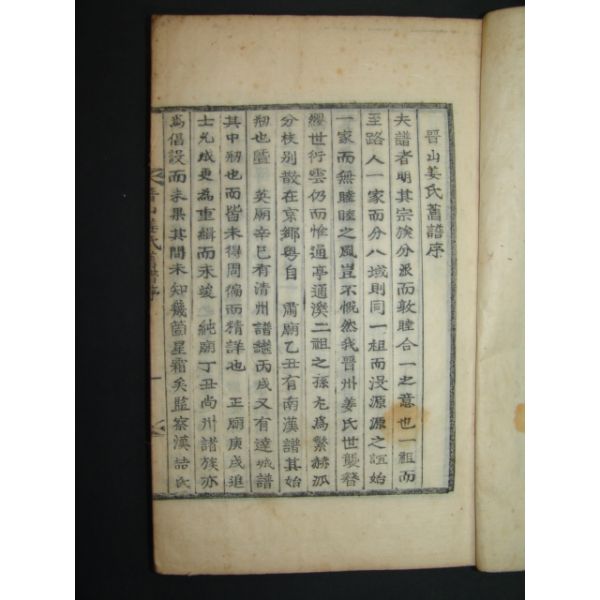 晋山姜氏舊譜序
夫譜者明其宗族分派而敦睦合一之意也一祖而
至路人一家而分八域則同一祖而浸源源之誼始
一家而無睦睦之風豈不慨然我晋州姜氏世襲簪
纓世衍雲仍而惟通亭通溪二祖之孫尢爲繁赫派
分枝別散在京鄕粤自 肅廟乙丑有南漢譜其始
刱也曁 英廟辛巳有淸州譜繼丙戌又有達城譜
其中刱也而皆未得周徧而精詳也 正廟庚戌進
士允成更爲重緝而未竣 純廟丁丑尚州譜族亦
爲倡設而未果其間未知幾箇星霜矣監察漢喆氏
晋山姜氏舊譜序 一